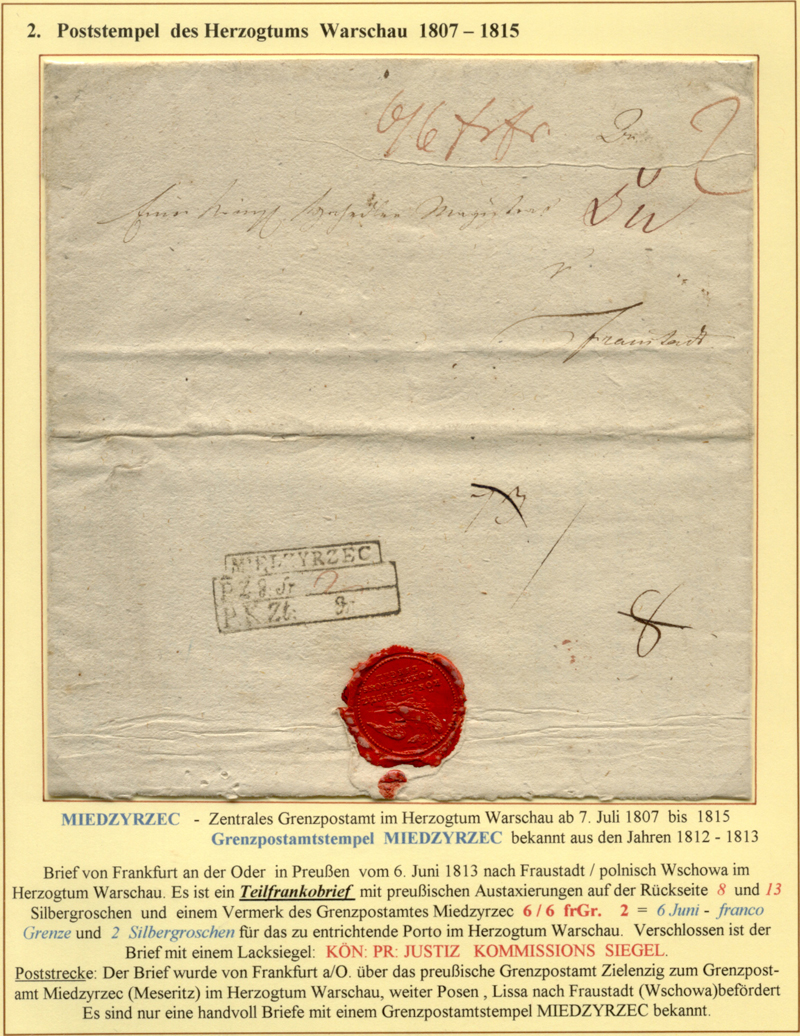 2. Poststempel des Herzogtums Warschau 1807 – 1815
6/6 frfr. 2
Fraustadt
8
MIĘDZYRZEC
P. Z. g. fr 2
P. K Zł: gr
MIEDZYRZEC - Zentrales Grenzpostamt im Herzogtum Warschau ab 7. Juli 1807 bis 1815
Grenzpostamtstempel MIEDZYRZEC bekannt aus den Jahren 1812 - 1813
Brief von Frankfurt an der Oder in Preußen vom 6. Juni 1813 nach Fraustadt / polnisch Wschowa im
Herzogtum Warschau. Es ist ein Teilfrankobrief mit preußischen Austaxierungen auf der Rückseite 8 und 13
Silbergroschen und einem Vermerk des Grenzpostamtes Miedzyrzec 6 / 6 frGr. 2 = 6 Juni - franco
Grenze und 2 Silbergroschen für das zu entrichtende Porto im Herzogtum Warschau. Verschlossen ist der
Brief mit einem Lacksiegel: KÖN: PR: JUSTIZ KOMMISSIONS SIEGEL.
Poststrecke: Der Brief wurde von Frankfurt a/O. über das preußische Grenzpostamt Zielenzig zum Grenzpost-
amt Miedzyrzec (Meseritz) im Herzogtum Warschau, weiter Posen , Lissa nach Fraustadt (Wschowa)befördert
Es sind nur eine handvoll Briefe mit einem Grenzpostamtstempel MIEDZYRZEC bekannt.